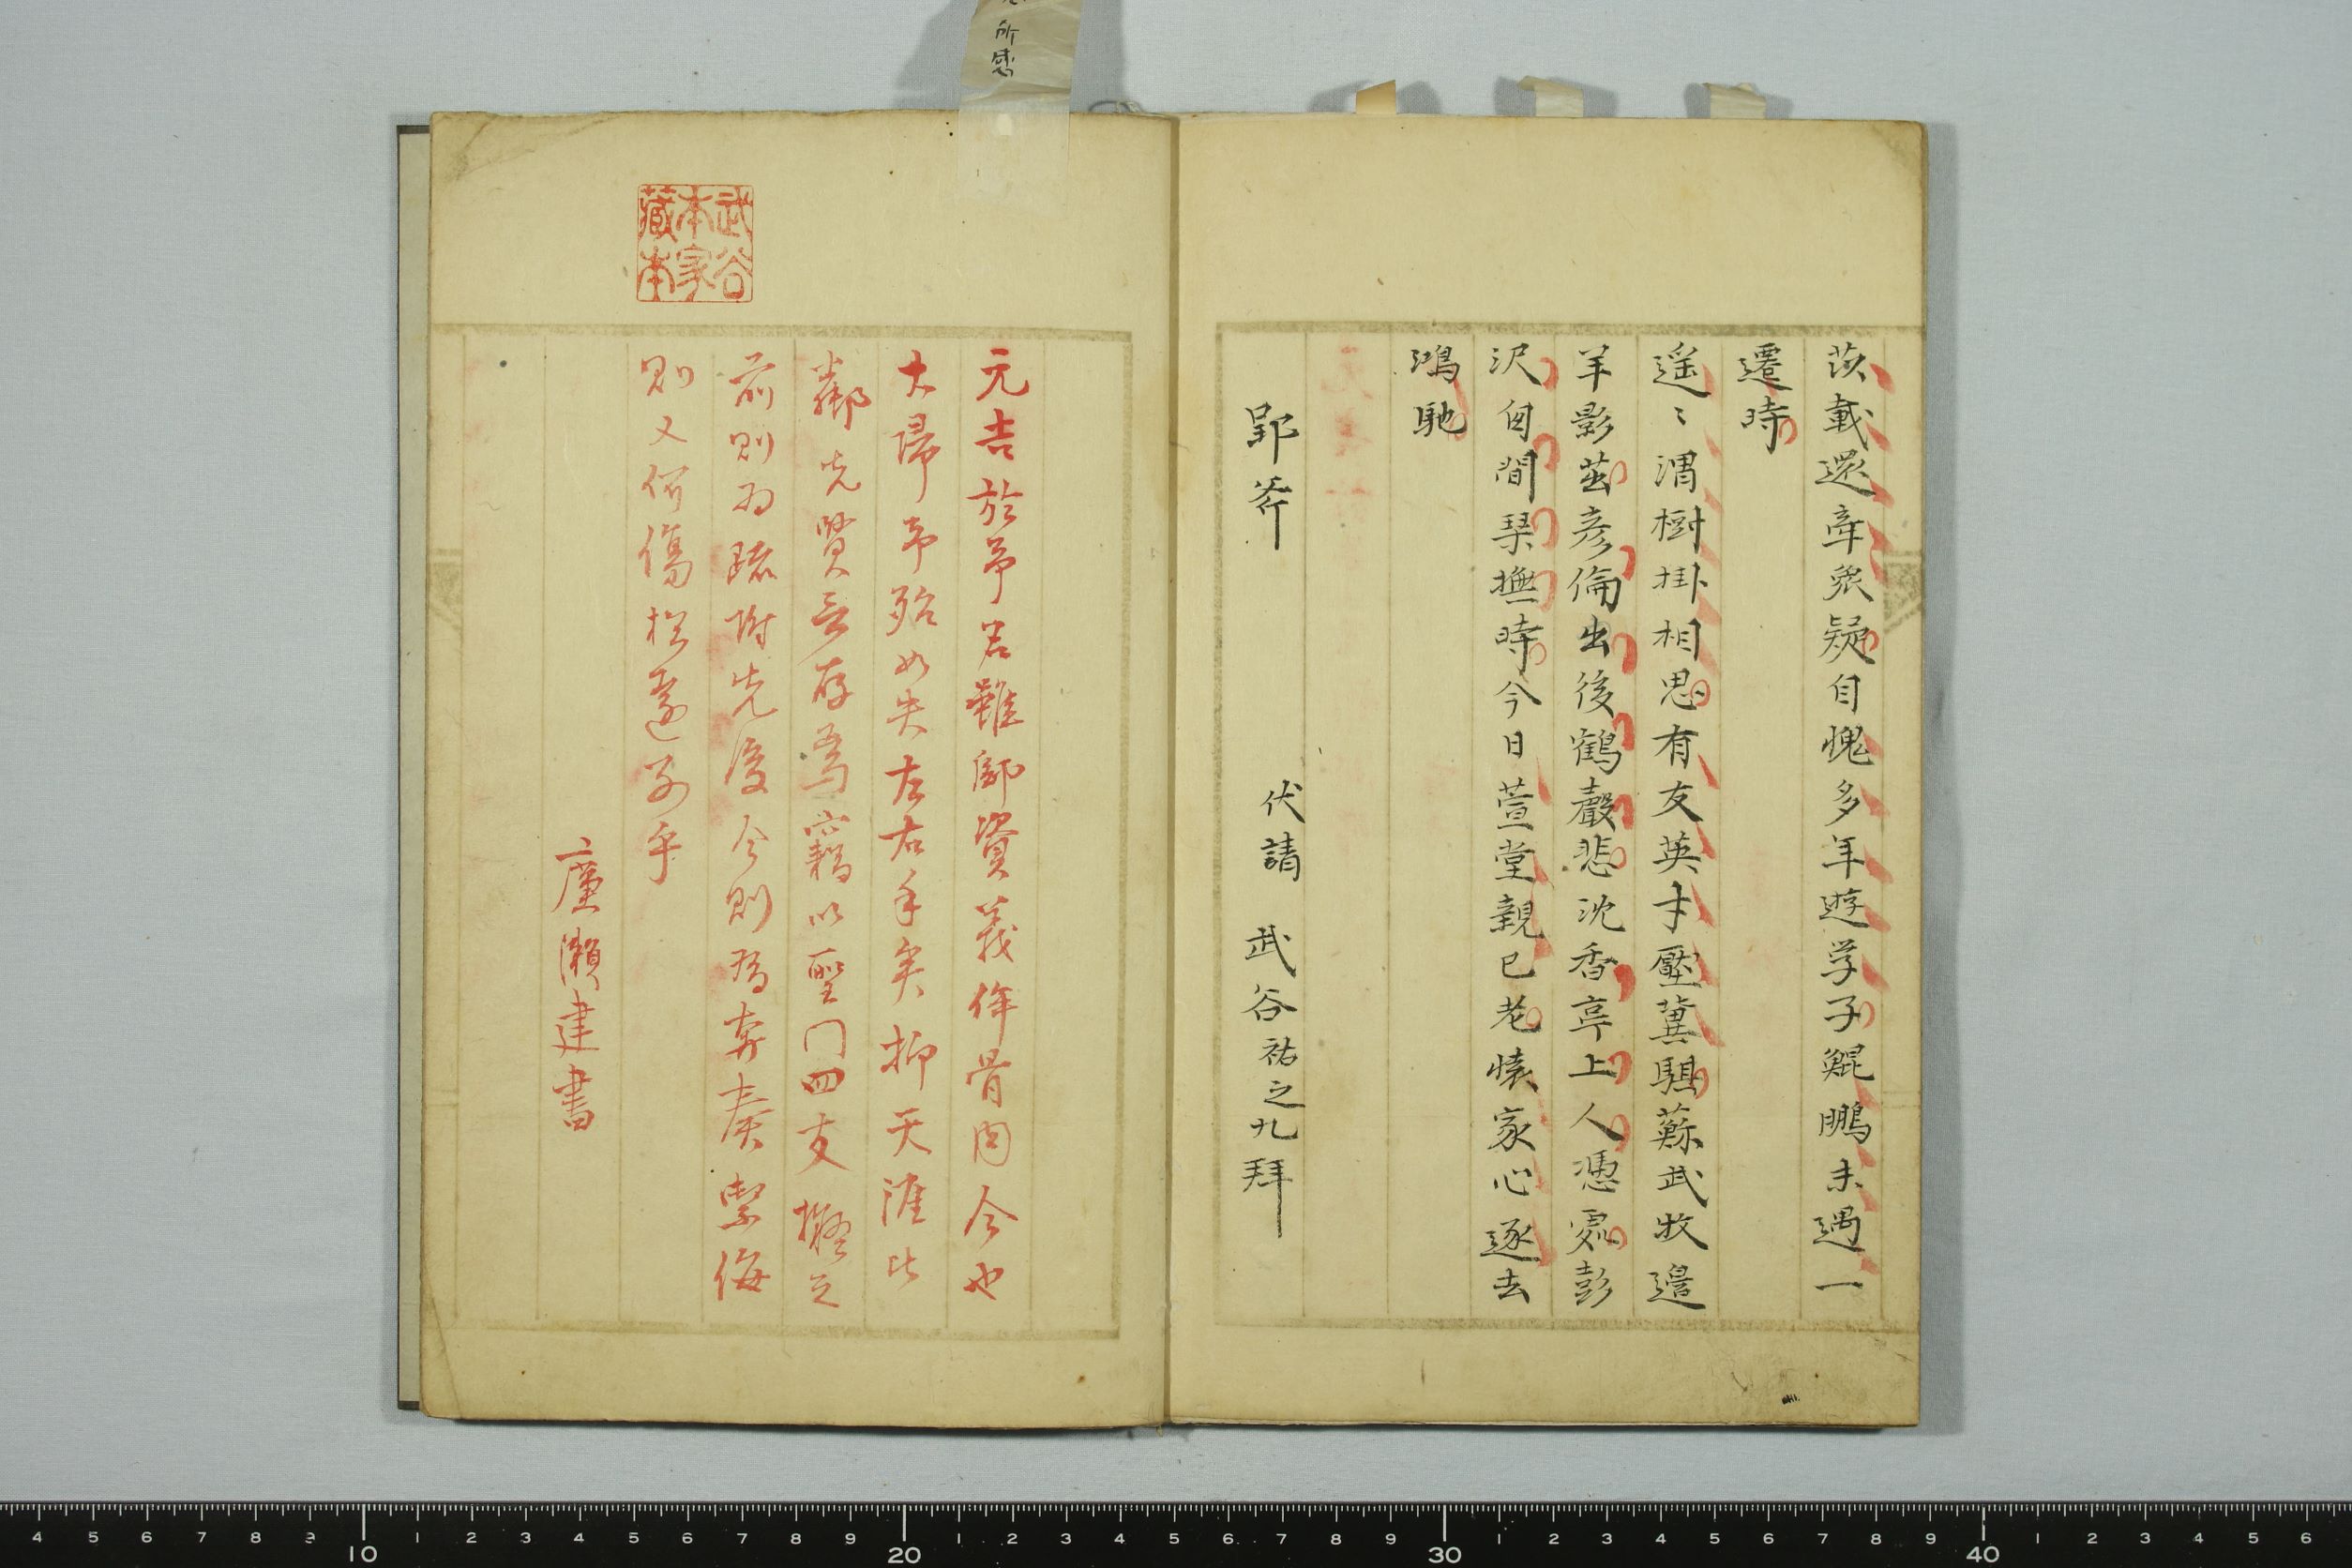 茨載還牽衆疑自愧多年遊学子鯤鵬未遇一
遷時
遥〻渭樹掛相思有友英才壓冀騏蘇武牧邉
羊影茁彦倫出後鶴聲悲沈香亭上人憑處彭
沢窗間琴撫時今日萱堂親已老懐家心逐去
鴻馳
郢斧
伏請 武谷祐之九拜
元吉於予名雖師資義侔骨肉今也
大歸予殆如失左右手矣抑天涯比
鄰先賢言存焉竊以聖門四支擬之
前則為疏附先後今則為奔奏禦侮
則又何傷於遠別乎
廣瀬建書
武谷
本家
藏本
所感